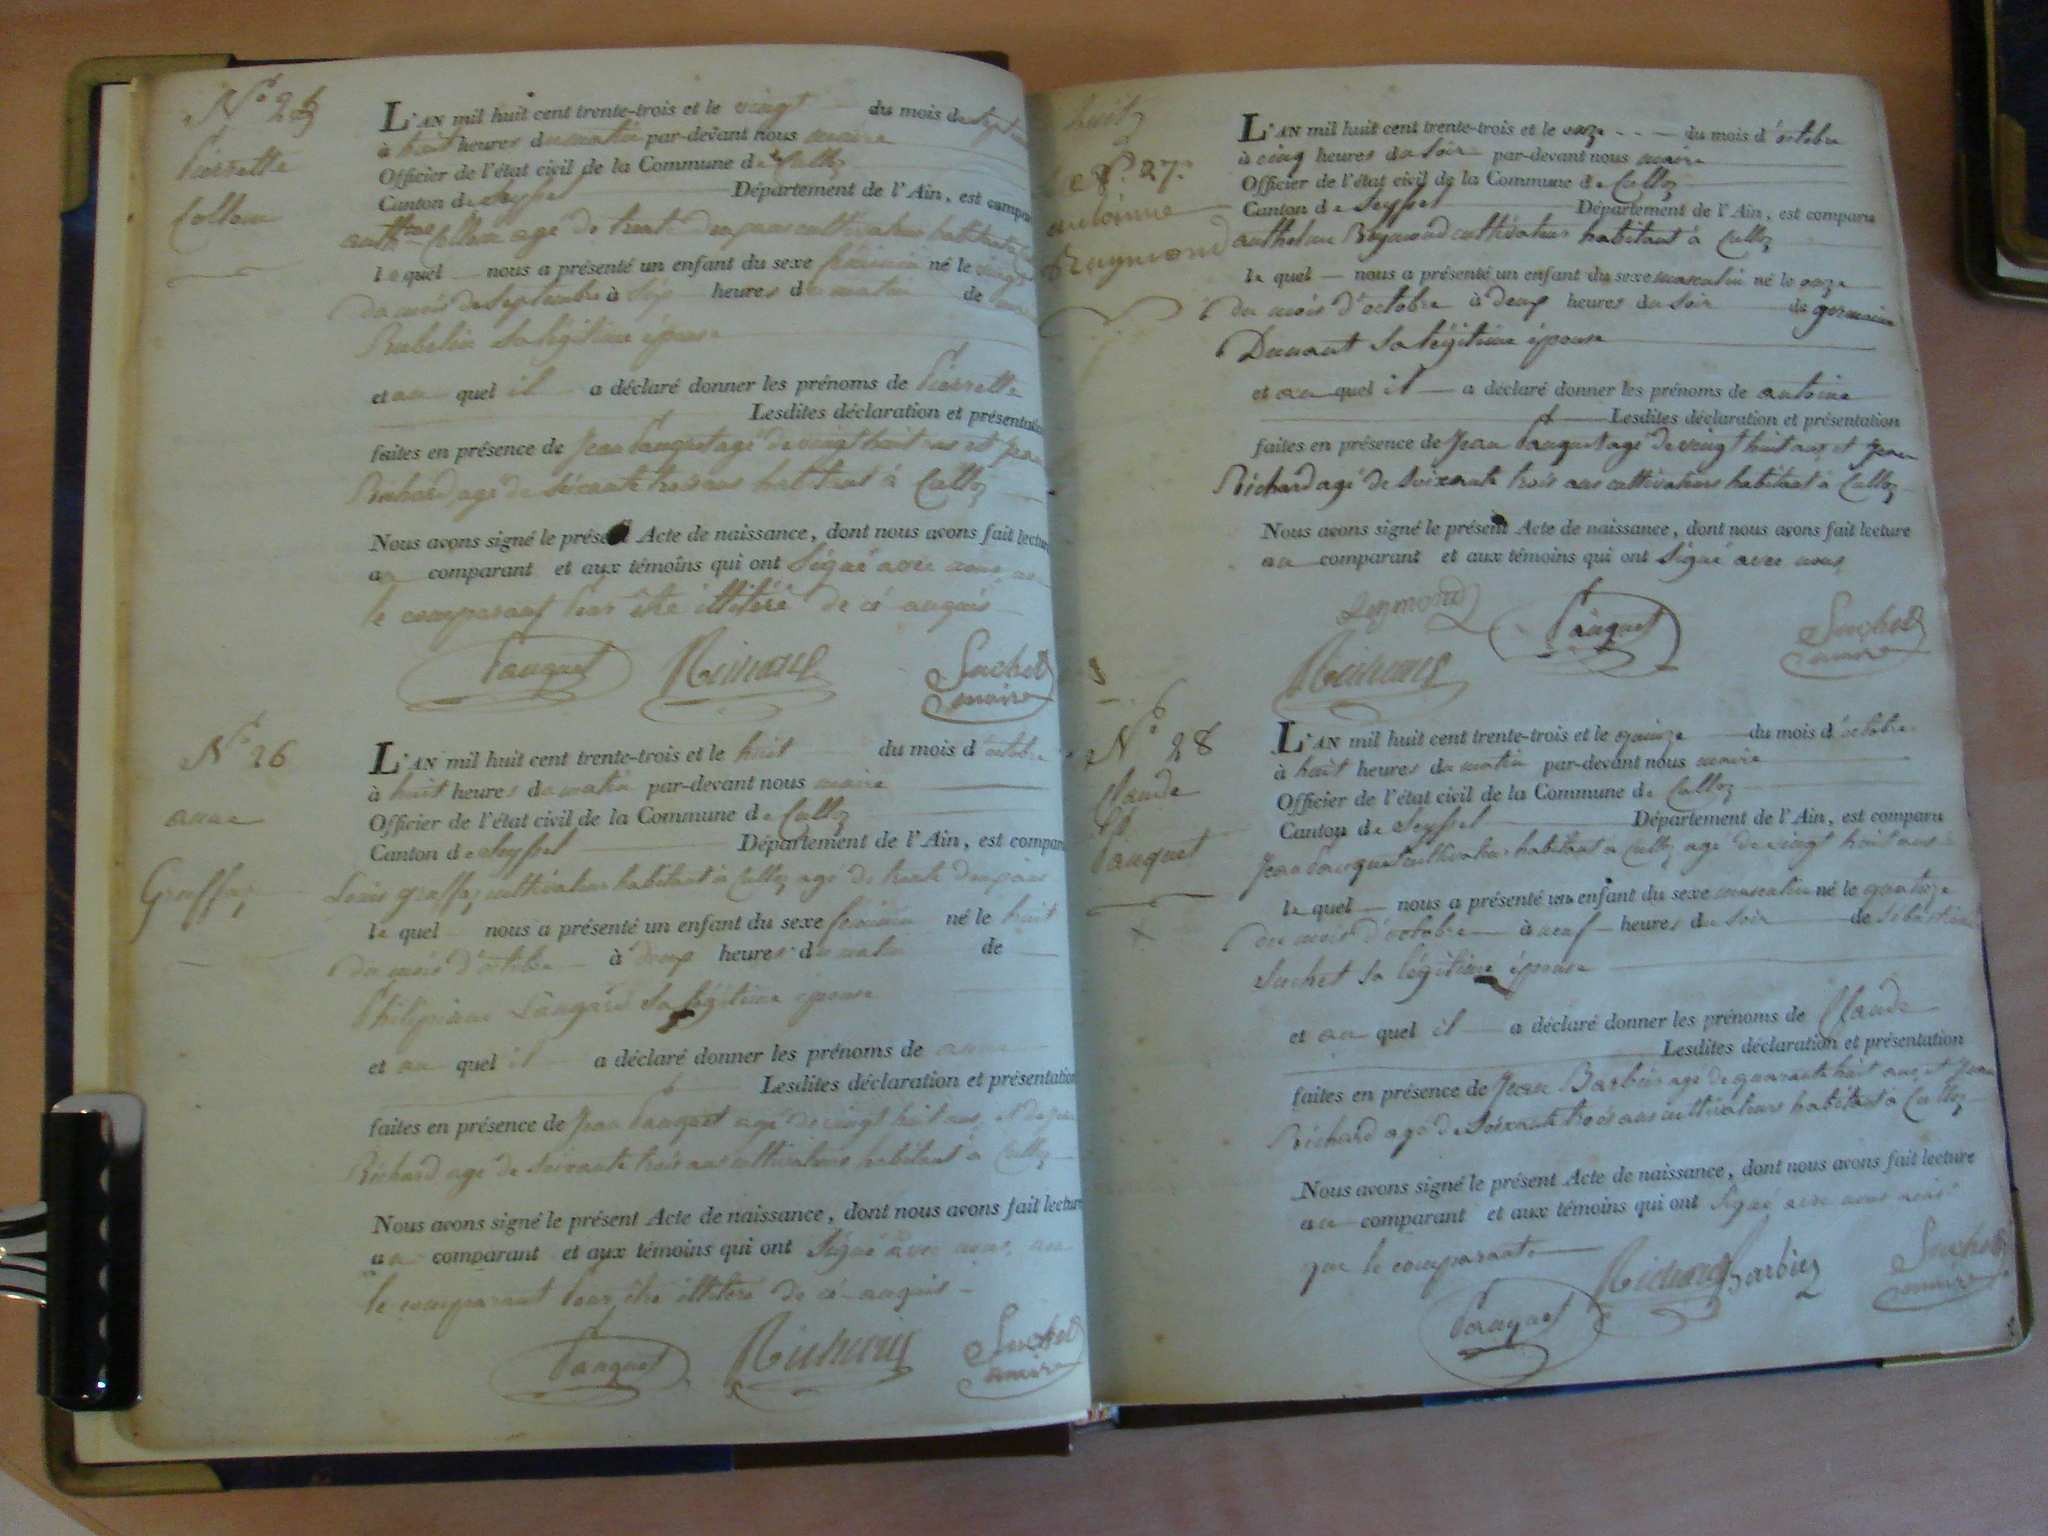 N.º 25
Pierrette
Collom
L'AN mil huit cent trente-trois et le vingt du mois de septembre
à huit heures du matin par-devant nous maire
Officier de l'état civil de la Commune de Culloz
Canton de Seyssel Département de l'Ain, est compar
Collom agé de trente deux ans cultivateur habitant
le quel nous a présenté un enfant du sexe féminin né le vingt
du mois de septembre à six heures du matin de
Rubelin sa légitime épouse
et au quel il a déclaré donner les prénoms de Pierrette
Lesdites déclaration et présentation
faites en présence de Jean Pauquet agé de vingt huit ans et Jean
Richard agé de soixante trois ans habitant à Culloz
Nous avons signé le présent Acte de naissance, dont nous avons fait lecture
au comparant et aux témoins qui ont signé avec nous
le comparant pour être illitéré de cé anquis
Pauquet Richard Suchet
maire
N.º 26
anne
Graffaz
L'AN mil huit cent trente-trois et le huit du mois d'octobre
à huit heures du matin par-devant nous maire
Officier de l'état civil de la Commune de Culloz
Canton de Seyssel Département de l'Ain, est compar
Louis graffaz cultivateur habitant à Culloz agé de trente deux ans
le quel nous a présenté un enfant du sexe féminin né le huit
du mois d'octobre à deux heures du matin de
sa légitime épouse
et au quel il a déclaré donner les prénoms de anne
Lesdites déclaration et présentation
faites en présence de Jean Pauquet agé de vingt huit ans et de Jean
Richard agé de soixante trois ans cultivateurs habitant à Culloz
Nous avons signé le présent Acte de naissance, dont nous avons fait lecture
au comparant et aux témoins qui ont signé avec nous
le comparant pour être illitéré de cé anquis
Pauquet Richard Suchet
maire
huit
N.º 27
antoinne
Raymond
L'AN mil huit cent trente-trois et le onze du mois d'octobre
à cinq heures du soir par-devant nous maire
Officier de l'état civil de la Commune de Culloz
Canton de Seyssel Département de l'Ain, est comparu
anthelme Reymond cultivateur habitant à Culloz
le quel nous a présenté un enfant du sexe masculin né le onze
du mois d'octobre à deux heures du soir de germaine
Dunant sa légitime épouse
et au quel il a déclaré donner les prénoms de antoine
Lesdites déclaration et présentation
faites en présence de Jean Pauquet agé de vingt huit ans et Jean
Richard agé de soixante trois ans cultivateurs habitant à Culloz
Nous avons signé le présent Acte de naissance, dont nous avons fait lecture
au comparant et aux témoins qui ont signé avec nous
Reymond Pauquet Suchet
Richard maire
N.º 28
Claude
Pauquet
L'AN mil huit cent trente-trois et le quinze du mois d'octobre
à huit heures du matin par-devant nous maire
Officier de l'état civil de la Commune de Culloz
Canton de Seyssel Département de l'Ain, est comparu
Jean Pauquet cultivateur habitant à Culloz agé de vingt huit ans
le quel nous a présenté un enfant du sexe masculin né le quatorze
du mois d'octobre à neuf heures du soir de
Suchet sa légitime épouse
et au quel il a déclaré donner les prénoms de Claude
Lesdites déclaration et présentation
faites en présence de Jean Barbier agé de quarante huit ans et Jean
Richard agé de soixante trois ans cultivateurs habitant à Culloz
Nous avons signé le présent Acte de naissance, dont nous avons fait lecture
au comparant et aux témoins qui ont signé avec nous ainsi
que le comparant
Richard Barbier Suchet
Pauquet maire